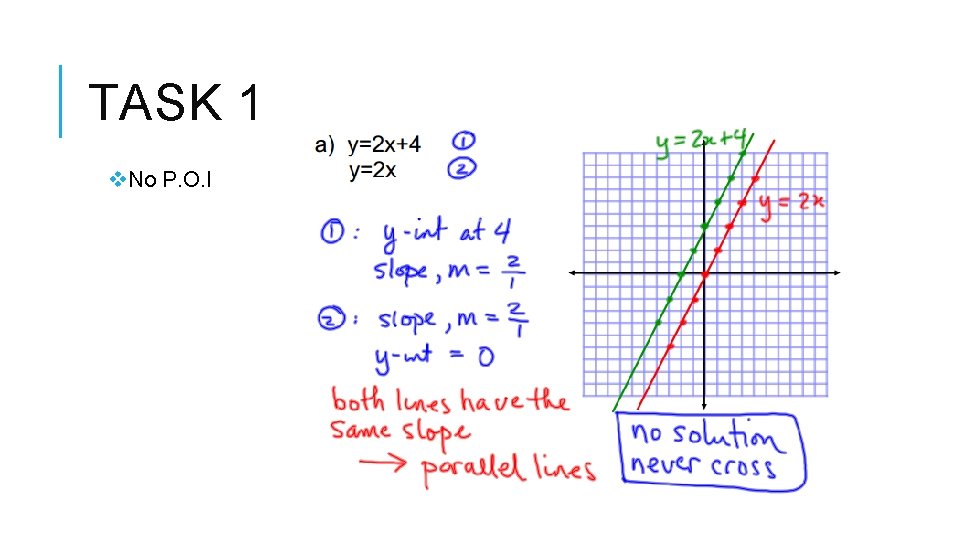 TASK 1
❖No P.O.I
a) y=2x+4 ①
y=2x ②
①: y-int at 4
slope, m = 2/1
②: slope, m = 2/1
y-int = 0
both lines have the
same slope
→ parallel lines
y = 2x+4
y = 2x
no solution
never cross